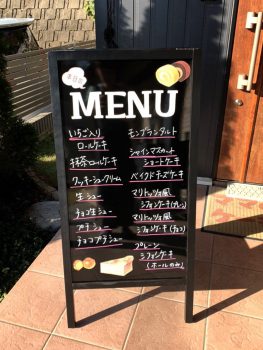 本日の
MENU
いちご入り
ロールケーキ
抹茶ロールケーキ
クッキーシュークリーム
生シュー
チョコ生シュー
プチシュー
チョコプチシュー
モンブランタルト
シャインマスカット
ショートケーキ
ベイクドチーズケーキ
マリトッツォ風
シフォンケーキ(プレーン)
マリトッツォ風
シフォンケーキ(チョコ)
プレーン
シフォンケーキ
(ホールのみ)